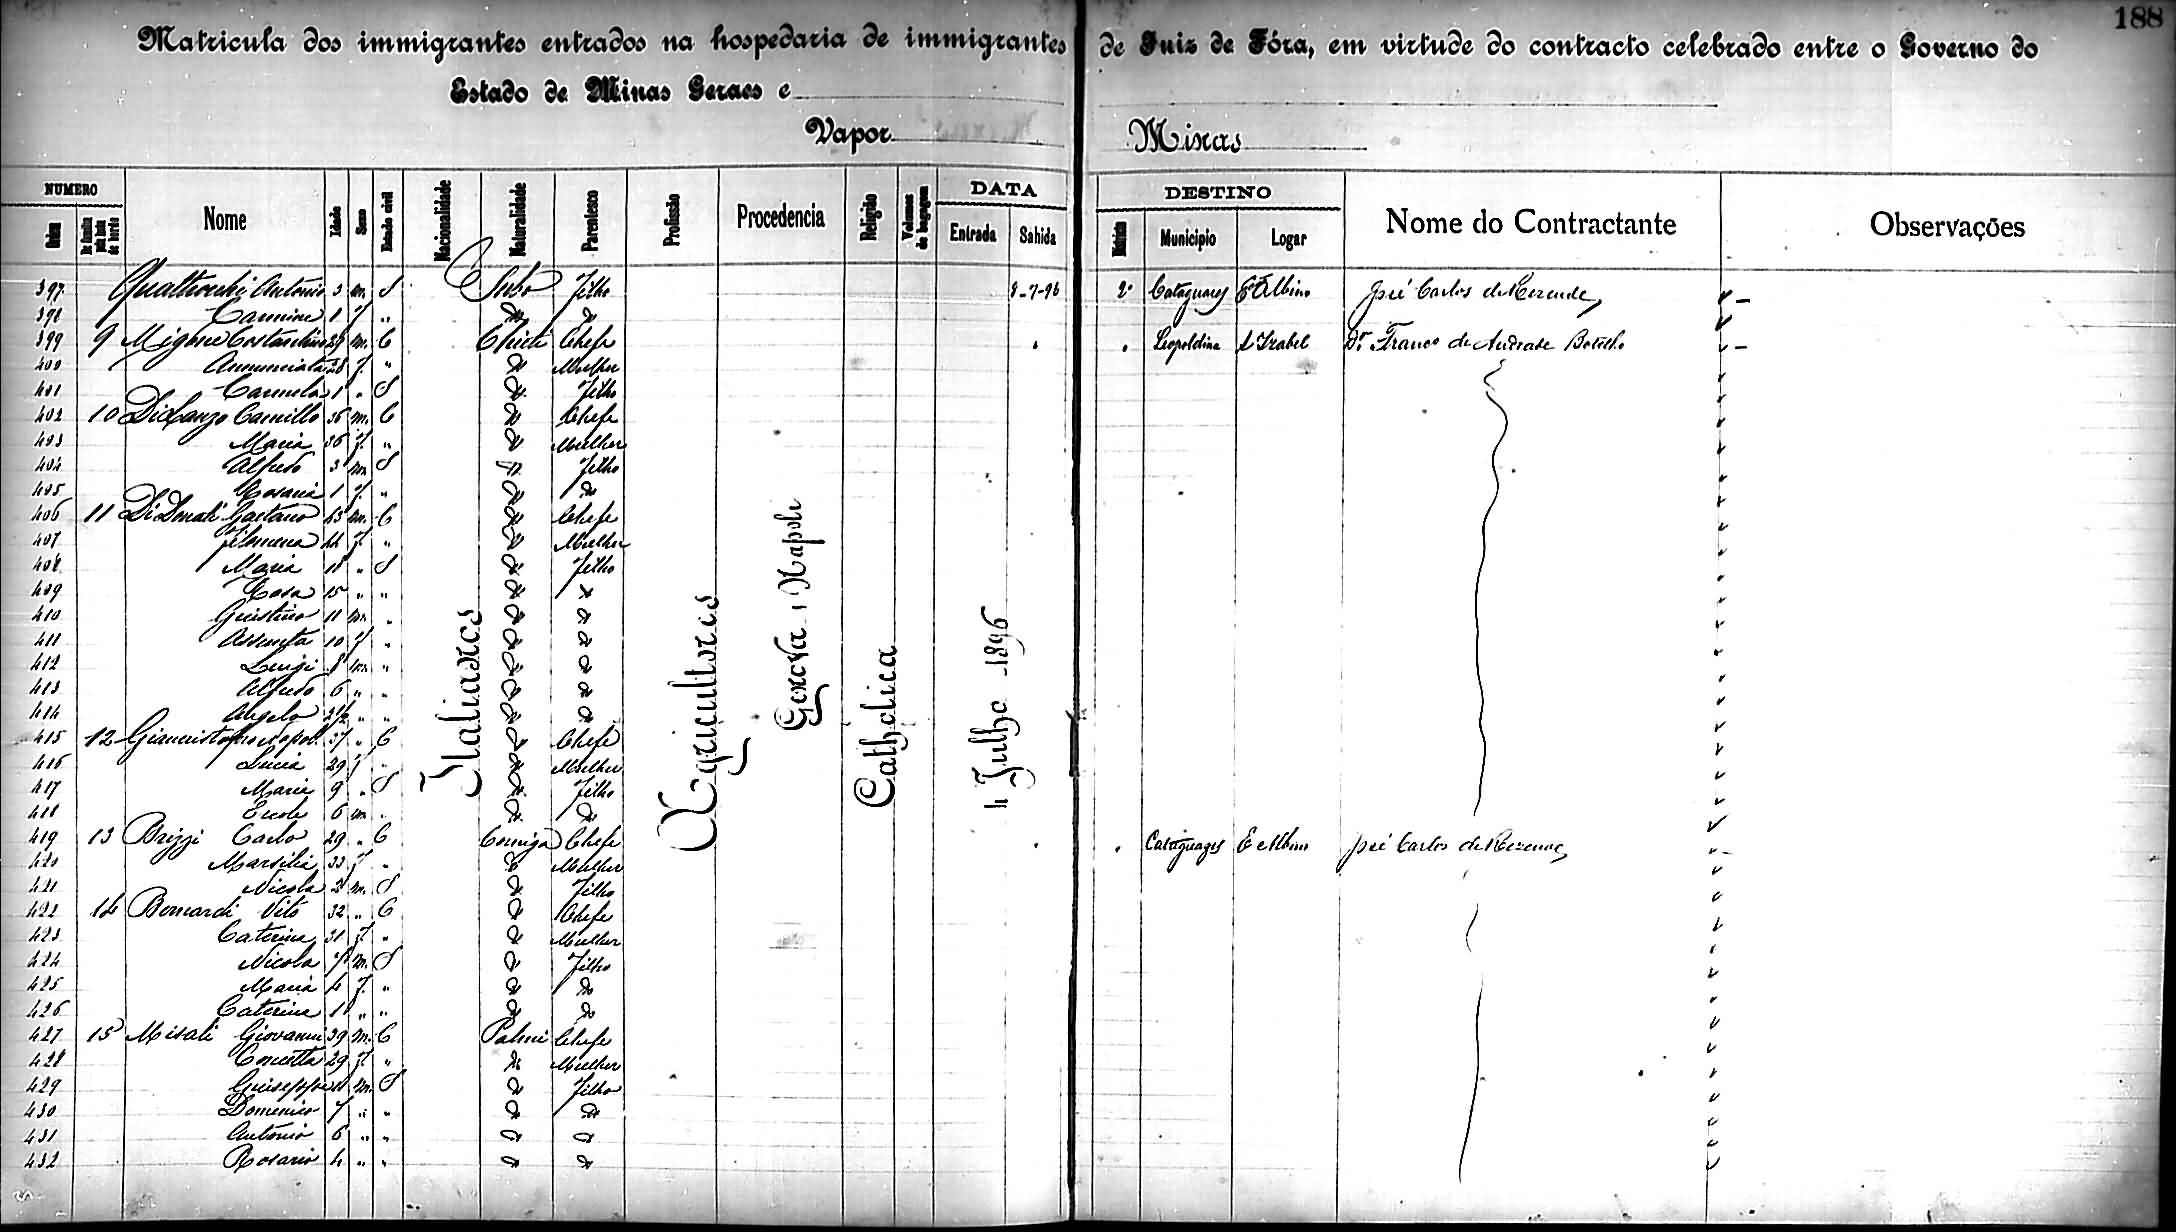 188
Matricula dos immigrantes entrados na hospedaria de immigrantes de Juiz de Fóra, em virtude do contracto celebrado entre o Governo do
Estado de Minas Geraes e
Vapor Minas
NUMERO DATA DESTINO
Ordem De familia pela lista de bordo Nome Idade Sexo Estado civil Nacionalidade Naturalidade Parentesco Profissão Procedencia Religião Volumes de bagagem Entrada Sahida Districto Municipio Logar Nome do Contractante Observações
Italianos Agricultores Genova Napoli Catholica 4 Julho 1896
397 Quattrocchi Antonio 3 m. S Filho 8-7-96 2º Cataguazes E. Albino José Carlos de Rezende
398 Carmine 1 f "
399 9 Costantino 29 m. C Chieti Chefe Leopoldina S. Izabel Dr. Franco de Andrade Botelho
400 Annunciata 28 f. " Mulher
401 Carmela 1 " S Filho
402 10 Camillo 36 m. C Chefe
403 Maria 36 f. " Mulher
404 Alfredo 3 m S Filho
405 Rosaria 1 f. "
406 11 Di Donati Gaetano 43 m. C Chefe
407 Filomena 44 f. " Mulher
408 Maria " S Filho
409 15 " "
410 Giustino 11 m. "
411 Assunta 10 f "
412 Luigi 8 m. "
413 Alfredo 6 " "
414 Angelo 2½ " "
415 12 37 " C Chefe
416 Lucia 29 f " Mulher
417 Maria 9 " S Filho
418 Ercole 6 m "
419 13 Brizzi Carlo 29 " C Chefe Cataguazes E Albino José Carlos de Rezende
420 Marsilia 33 f " Mulher
421 Nicola 2 m. S Filho
422 14 Bernardi Vito 32 " C Chefe
423 Caterina 31 f. " Mulher
424 Nicola 7 m. S Filho
425 Maria 4 f. "
426 Caterina 1 " "
427 15 Misali Giovanni 39 m. C Palmi Chefe
428 Concetta 29 f. " Mulher
429 Giuseppe m. S Filho
430 Domenico 7 " "
431 Antonio 6 " "
432 Rosario 4 " "